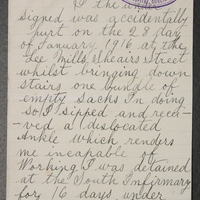 I the under
signed was accidentally
hurt on the 28 day
of January 1916 at the
Lee Mills Shears Street
whilst bringing down
stairs one bundle of
empty Sachs In doing
so I slipped and recei-
ved a dislocated
Ankle which renders
me incapable of
Working I was detained
at the South Infirmary
for 16 days under